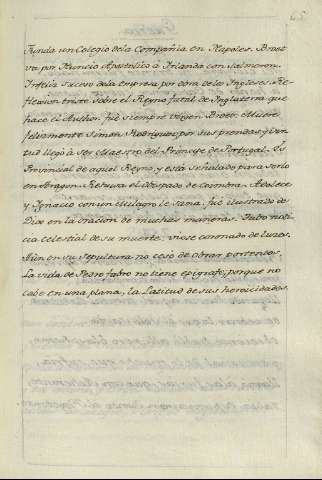 Funda un Colegio de la Compañia en Napoles. Broet
va por Nuncio Apostolico à Irlanda con Salmeron.
Infeliz suceso de la empresa por dolo de los Ingleses. Re-
flexion triste sobre el Reyno fatal de Inglaterra que
hace el Author. fuè siempre virgen Broet. Muere
felizmente Simon Rodriguez; por sus prendas, y vir-
tud llegò à ser Maestro del Principe de Portugal. Es
Provincial de aquel Reyno, y està señalado para serlo
en Aragon. Rehusa el obispado de Coimbra. Adolece
y Ignacio con un milagro le sana. fuè ilustrado de
Dios en la oracion de muchas maneras. Tubo noti-
cia celestial de su muerte, viose coronado de luzes.
Aùn en su Sepultura no cesò de obrar portentos.
La vida de Pedro fabro no tiene epigrafe, porque no
cabe en una plana, la Latitud de sus heroicidades.